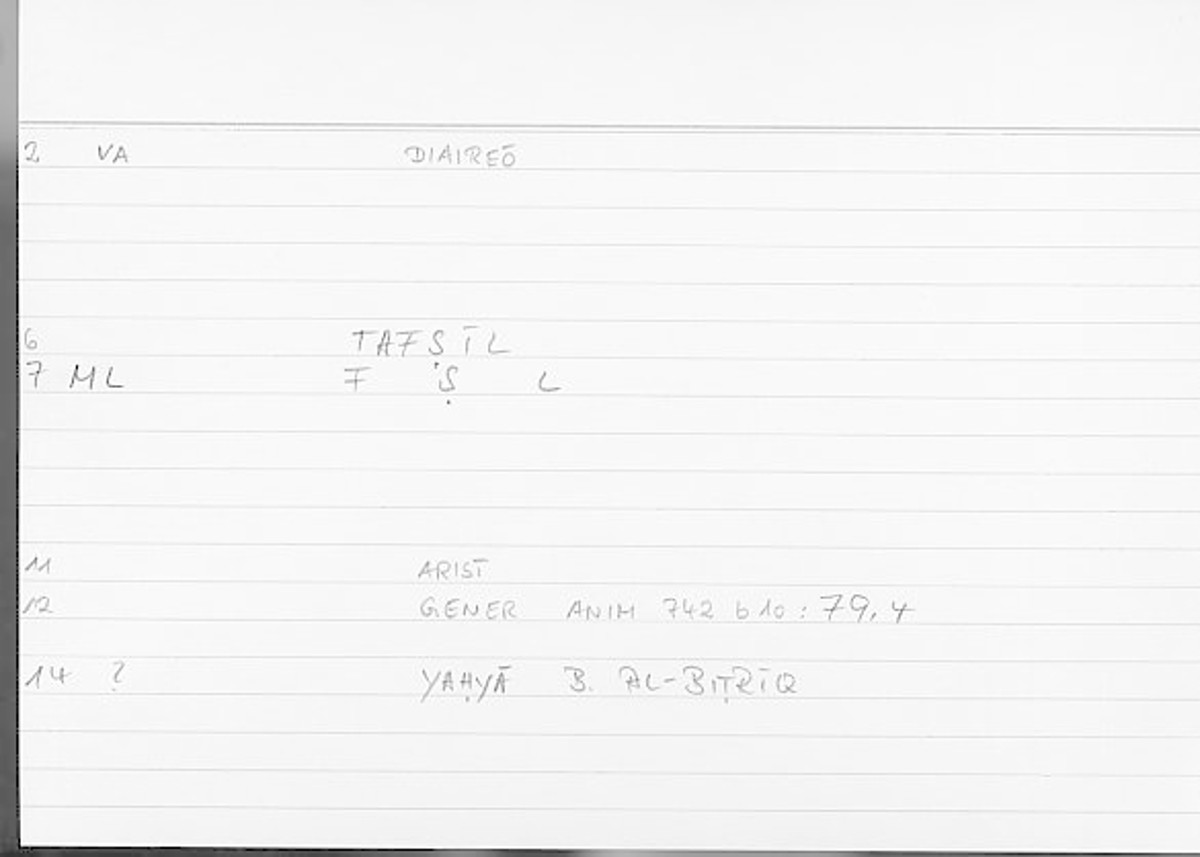 2 VA DIAIREŌ
6 TAFṢĪL
7 ML F Ṣ L
11 ARIST
12 GENER ANIM 742 b 10 : 79,4
14 ? YAḤYĀ B. AL-BIṬRĪQ